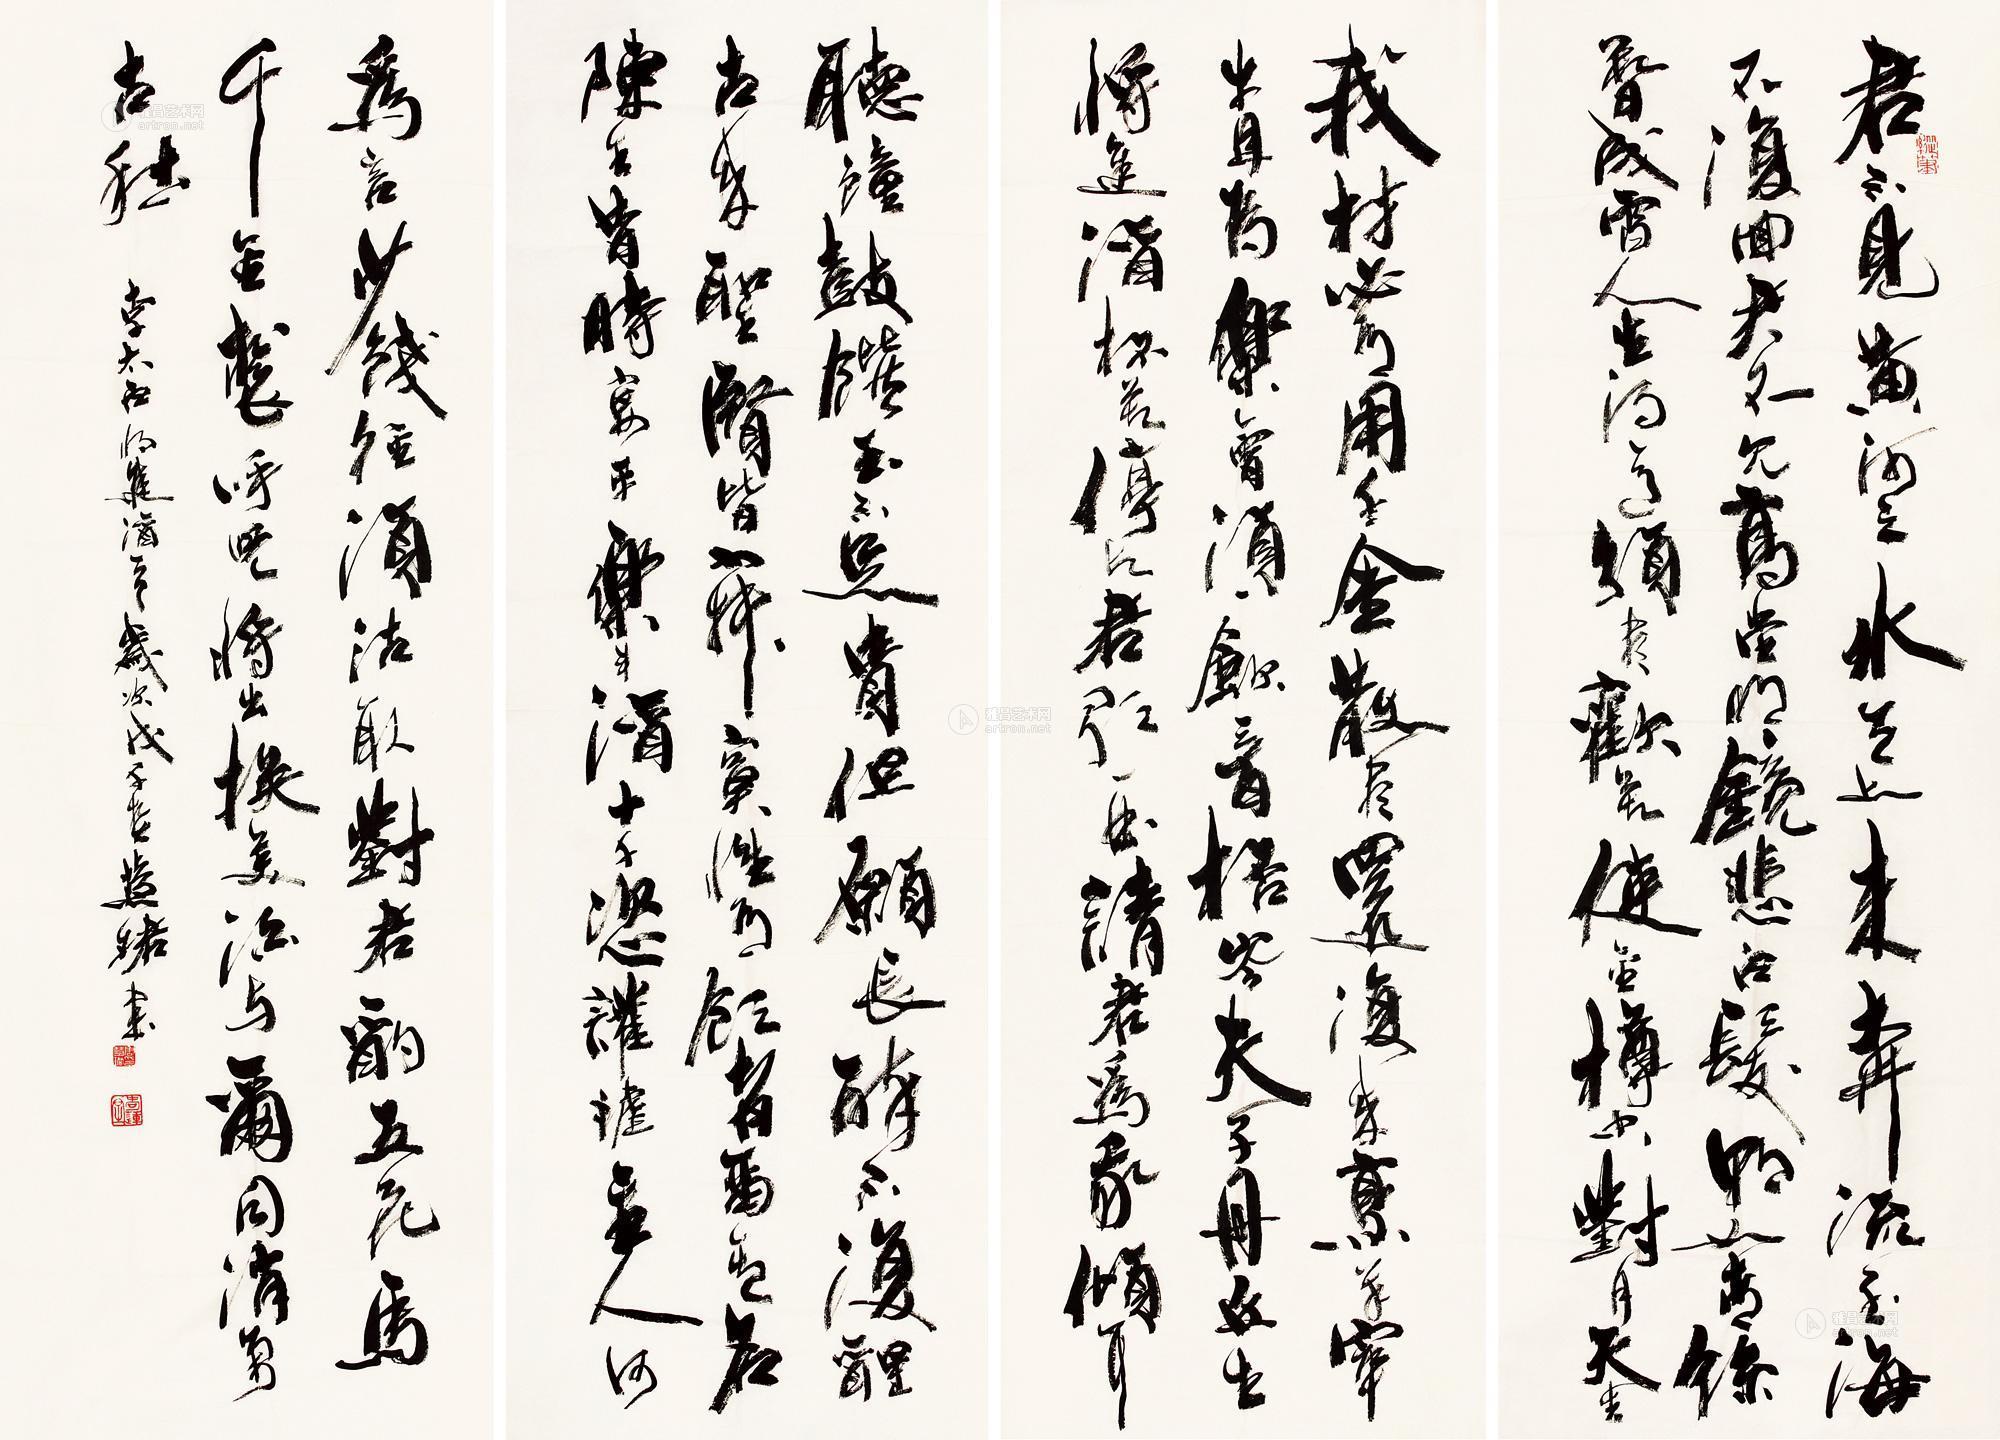 君不見黄河之水天上来奔流至海
不復回君不見高堂明鏡悲白髮朝如青絲
暮成雪人生得意須盡歡莫使金樽空對月天生
我材必有用千金散盡還復来烹羊宰
牛且為樂會須一飲三百杯岑夫子丹丘生
將進酒杯莫停與君歌一曲請君為我傾耳
聽鐘鼓饌玉不足貴但願長醉不復醒
古来聖賢皆寂寞惟有飲者留其名
陳王昔時宴平樂斗酒十千恣讙謔主人何
為言少錢徑須沽取對君酌五花馬
千金裘呼兒將出換美酒與爾同消萬
古愁 李太白將進酒 歲次戊子 書